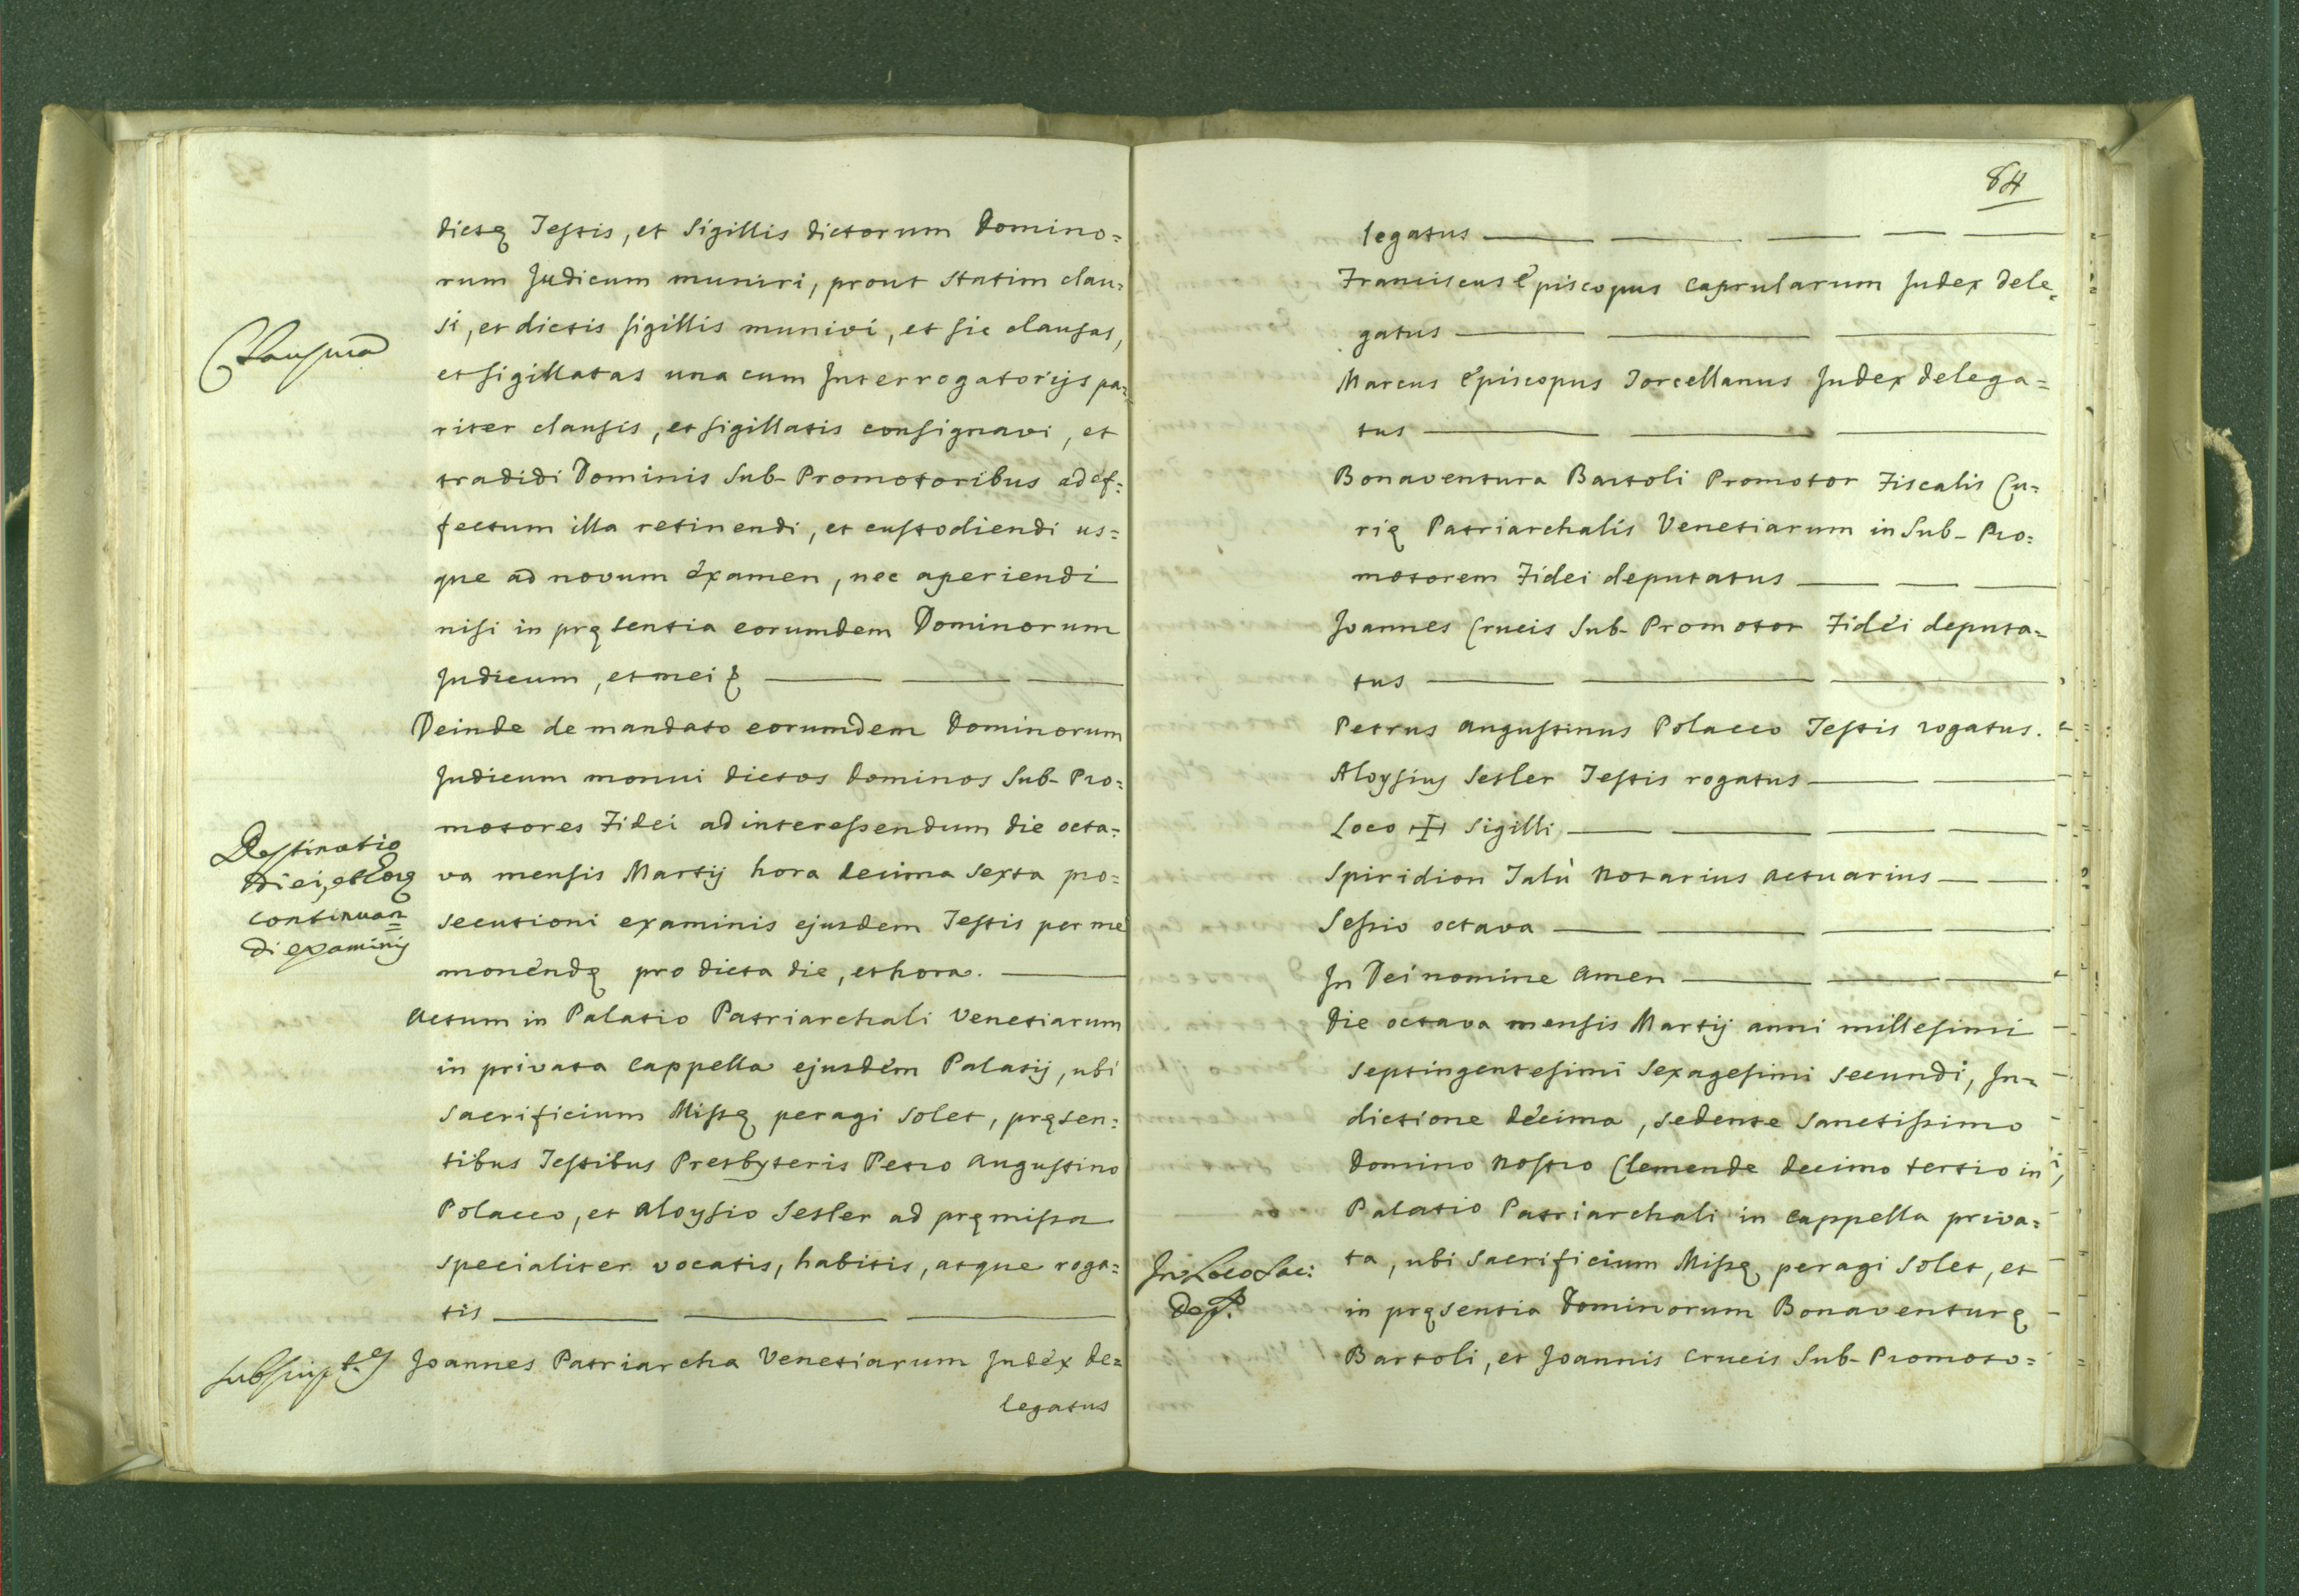 dictę Testis, et Sigillis dictorum Domino=
rum Judicum muniri, prout statim clau=
si, et dictis sigillis munivi, et sic clausas,
Clausura
et sigillatas una cum Interrogatorijs pa=
riter clausis, et sigillatis consignavi, et
tradidi Dominis Sub-Promotoribus ad ef=
fectum illa retinendi, et custodiendi us=
que ad novum éxamen, nec aperiendi
nisi in pręsentia eorumdem Dominorum
Judicum, et mei
Deinde de mandato eorumdem Dominorum
Judicum monui dictos Dominos Sub-Pro=
motores Fidei ad interessendum die octa=
va mensis Martij hora decima sexta pro=
secutioni examinis ejusdem Testis per me
monendę pro dicta die, et hora.
Destinatio
Diei, et horę
continuan=
di examinis
Actum in Palatio Patriarchali Venetiarum
in privata Cappella ejusdem Palatij, ubi
Sacrificium Missę peragi solet, pręsen=
tibus Testibus Presbyteris Petro Augustino
Polacco, et Aloysio Sesler ad pręmissa
specialiter vocatis, habitis, atque roga=
tis
Joannes Patriarcha Venetiarum Judéx de=
legatus
84
legatus
Franciscus Episcopus Caprularum Judex dele=
gatus
Marcus Episcopus Torcellanus Judex delega=
tus
Bonaventura Bartoli Promotor Fiscalis Cu=
rię Patriarchalis Venetiarum in Sub-Pro=
motorem Fidei deputatus
Joannes Crucis Sub-Promotor Fidei deputa=
tus
Petrus Augustinus Polacco Testis rogatus.
Aloysius Sesler Testis rogatus
Loco ✠ Sigilli
Spiridion Talù Notarius Actuarius
Sessio octava
In Dei nomine Amen
Die octava mensis Martij anni millesimi
septingentesimi sexagesimi secundi, In=
dictione décima, sedente Sanctissimo
Domino Nostro Clemende decimo tertio in
Palatio Patriarchali in Cappella priva=
ta, ubi Sacrificium Missę peragi solet, et
in pręsentia Dominorum Bonaventurę
Bartoli, et Joannis Crucis Sub-Promoto=
In Loco Sac: